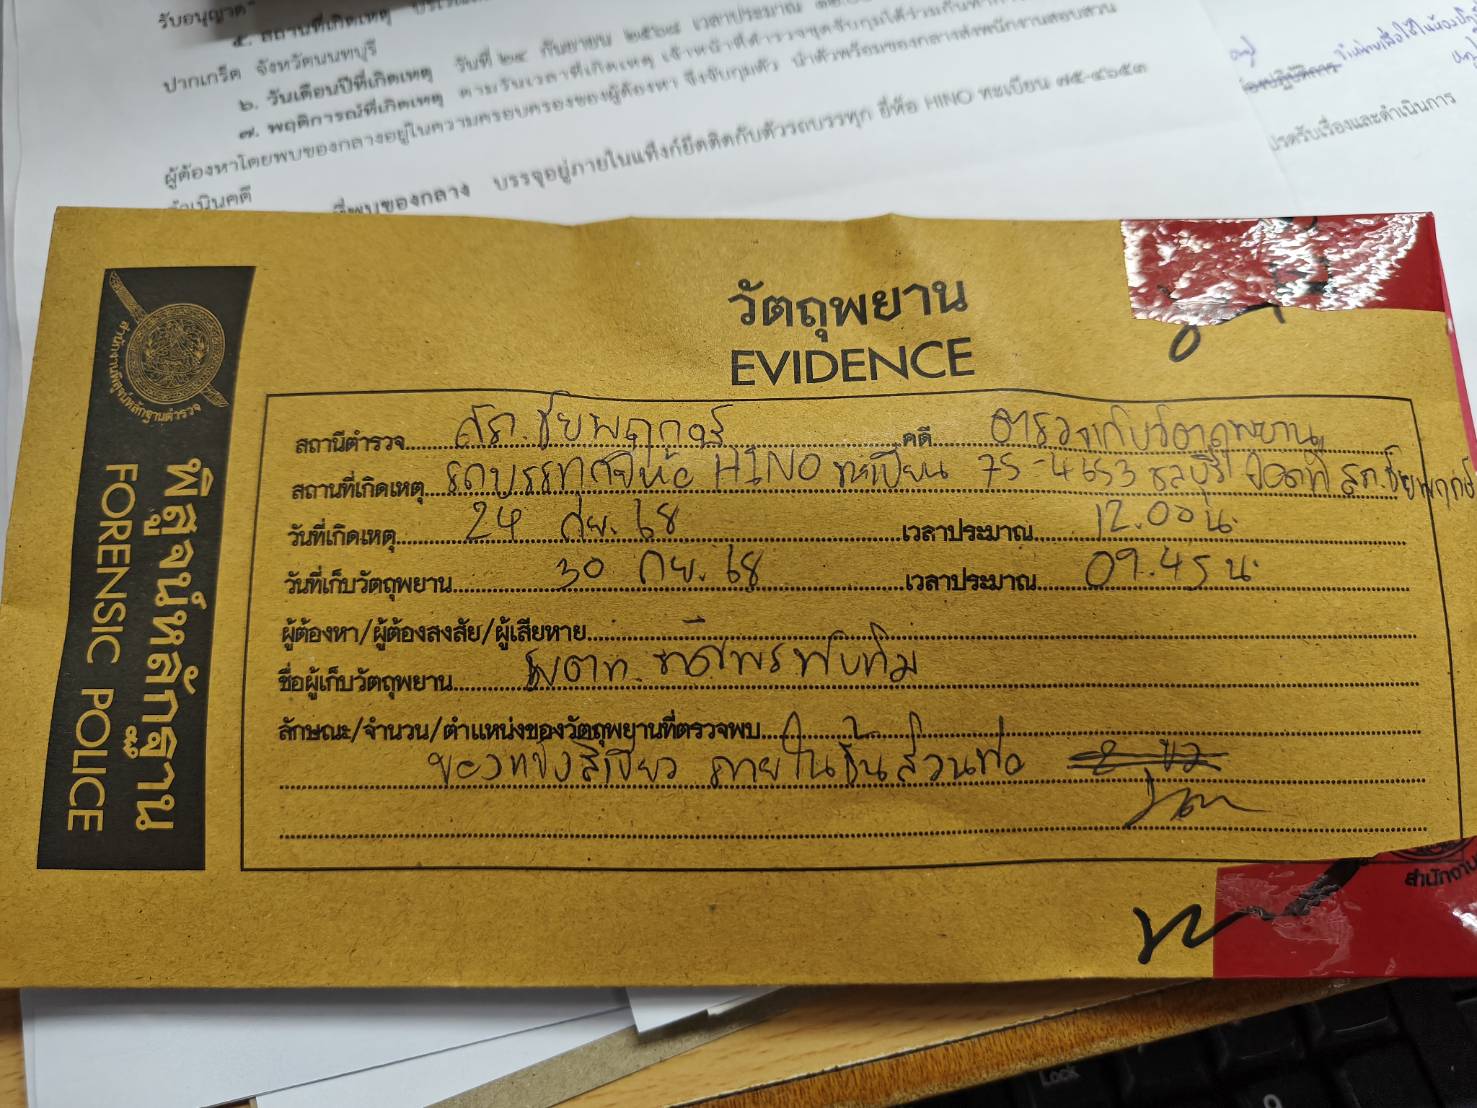 รับอนุญาต"
๕. สถานที่เกิดเหตุ
ปากเกร็ด จังหวัดนนทบุรี
๖. วันเดือนปีที่เกิดเหตุ วันที่ ๒๔ กันยายน ๒๕๖๘ เวลาประมาณ
๗. พฤติการณ์ที่เกิดเหตุ ตามวันเวลาที่เกิดเหตุ เจ้าหน้าที่ตำรวจชุดจับกุมได้ร่วมกันทำการ
ผู้ต้องหาโดยพบของกลางอยู่ในความครอบครองของผู้ต้องหา จึงจับกุมตัว นำตัวพร้อมของกลางส่งพนักงานสอบสวน
ดำเนินคดี
ที่พบของกลาง บรรจุอยู่ภายในแท็งก์ยึดติดกับตัวรถบรรทุก ยี่ห้อ HINO ทะเบียน ๗๕-๔๖๕๓
โปรดรับเรื่องและดำเนินการ
วัตถุพยาน
EVIDENCE
สำนักงานพิสูจน์หลักฐานตำรวจ
พิสูจน์หลักฐาน
FORENSIC POLICE
สถานีตำรวจ สภ.ชัยพฤกษ์ คดี ตรวจเก็บวัตถุพยาน
สถานที่เกิดเหตุ รถบรรทุกยี่ห้อ HINO ทะเบียน 75-4653 ชลบุรี จอดที่ สภ.ชัยพฤกษ์
วันที่เกิดเหตุ 24 ก.ย. 68 เวลาประมาณ 12.00 น.
วันที่เก็บวัตถุพยาน 30 ก.ย. 68 เวลาประมาณ 09.45 น.
ผู้ต้องหา/ผู้ต้องสงสัย/ผู้เสียหาย -
ชื่อผู้เก็บวัตถุพยาน
ลักษณะ/จำนวน/ตำแหน่งของวัตถุพยานที่ตรวจพบ
ของแข็งสีเขียว ภายในชิ้นส่วนท่อ
สำนักงาน
Lock